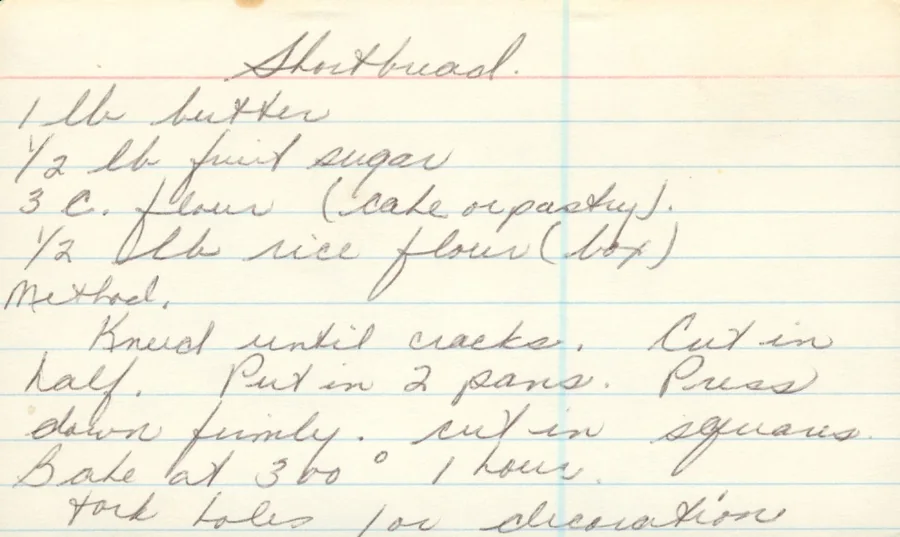 Shortbread.
1 lb butter
1/2 lb fruit sugar
3 C. flour (cake or pastry).
1/2 lb rice flour (box)
Method.
Knead until cracks. Cut in
half. Put in 2 pans. Press
down firmly. cut in squares.
Bake at 300° 1 hour.
fork holes for decoration